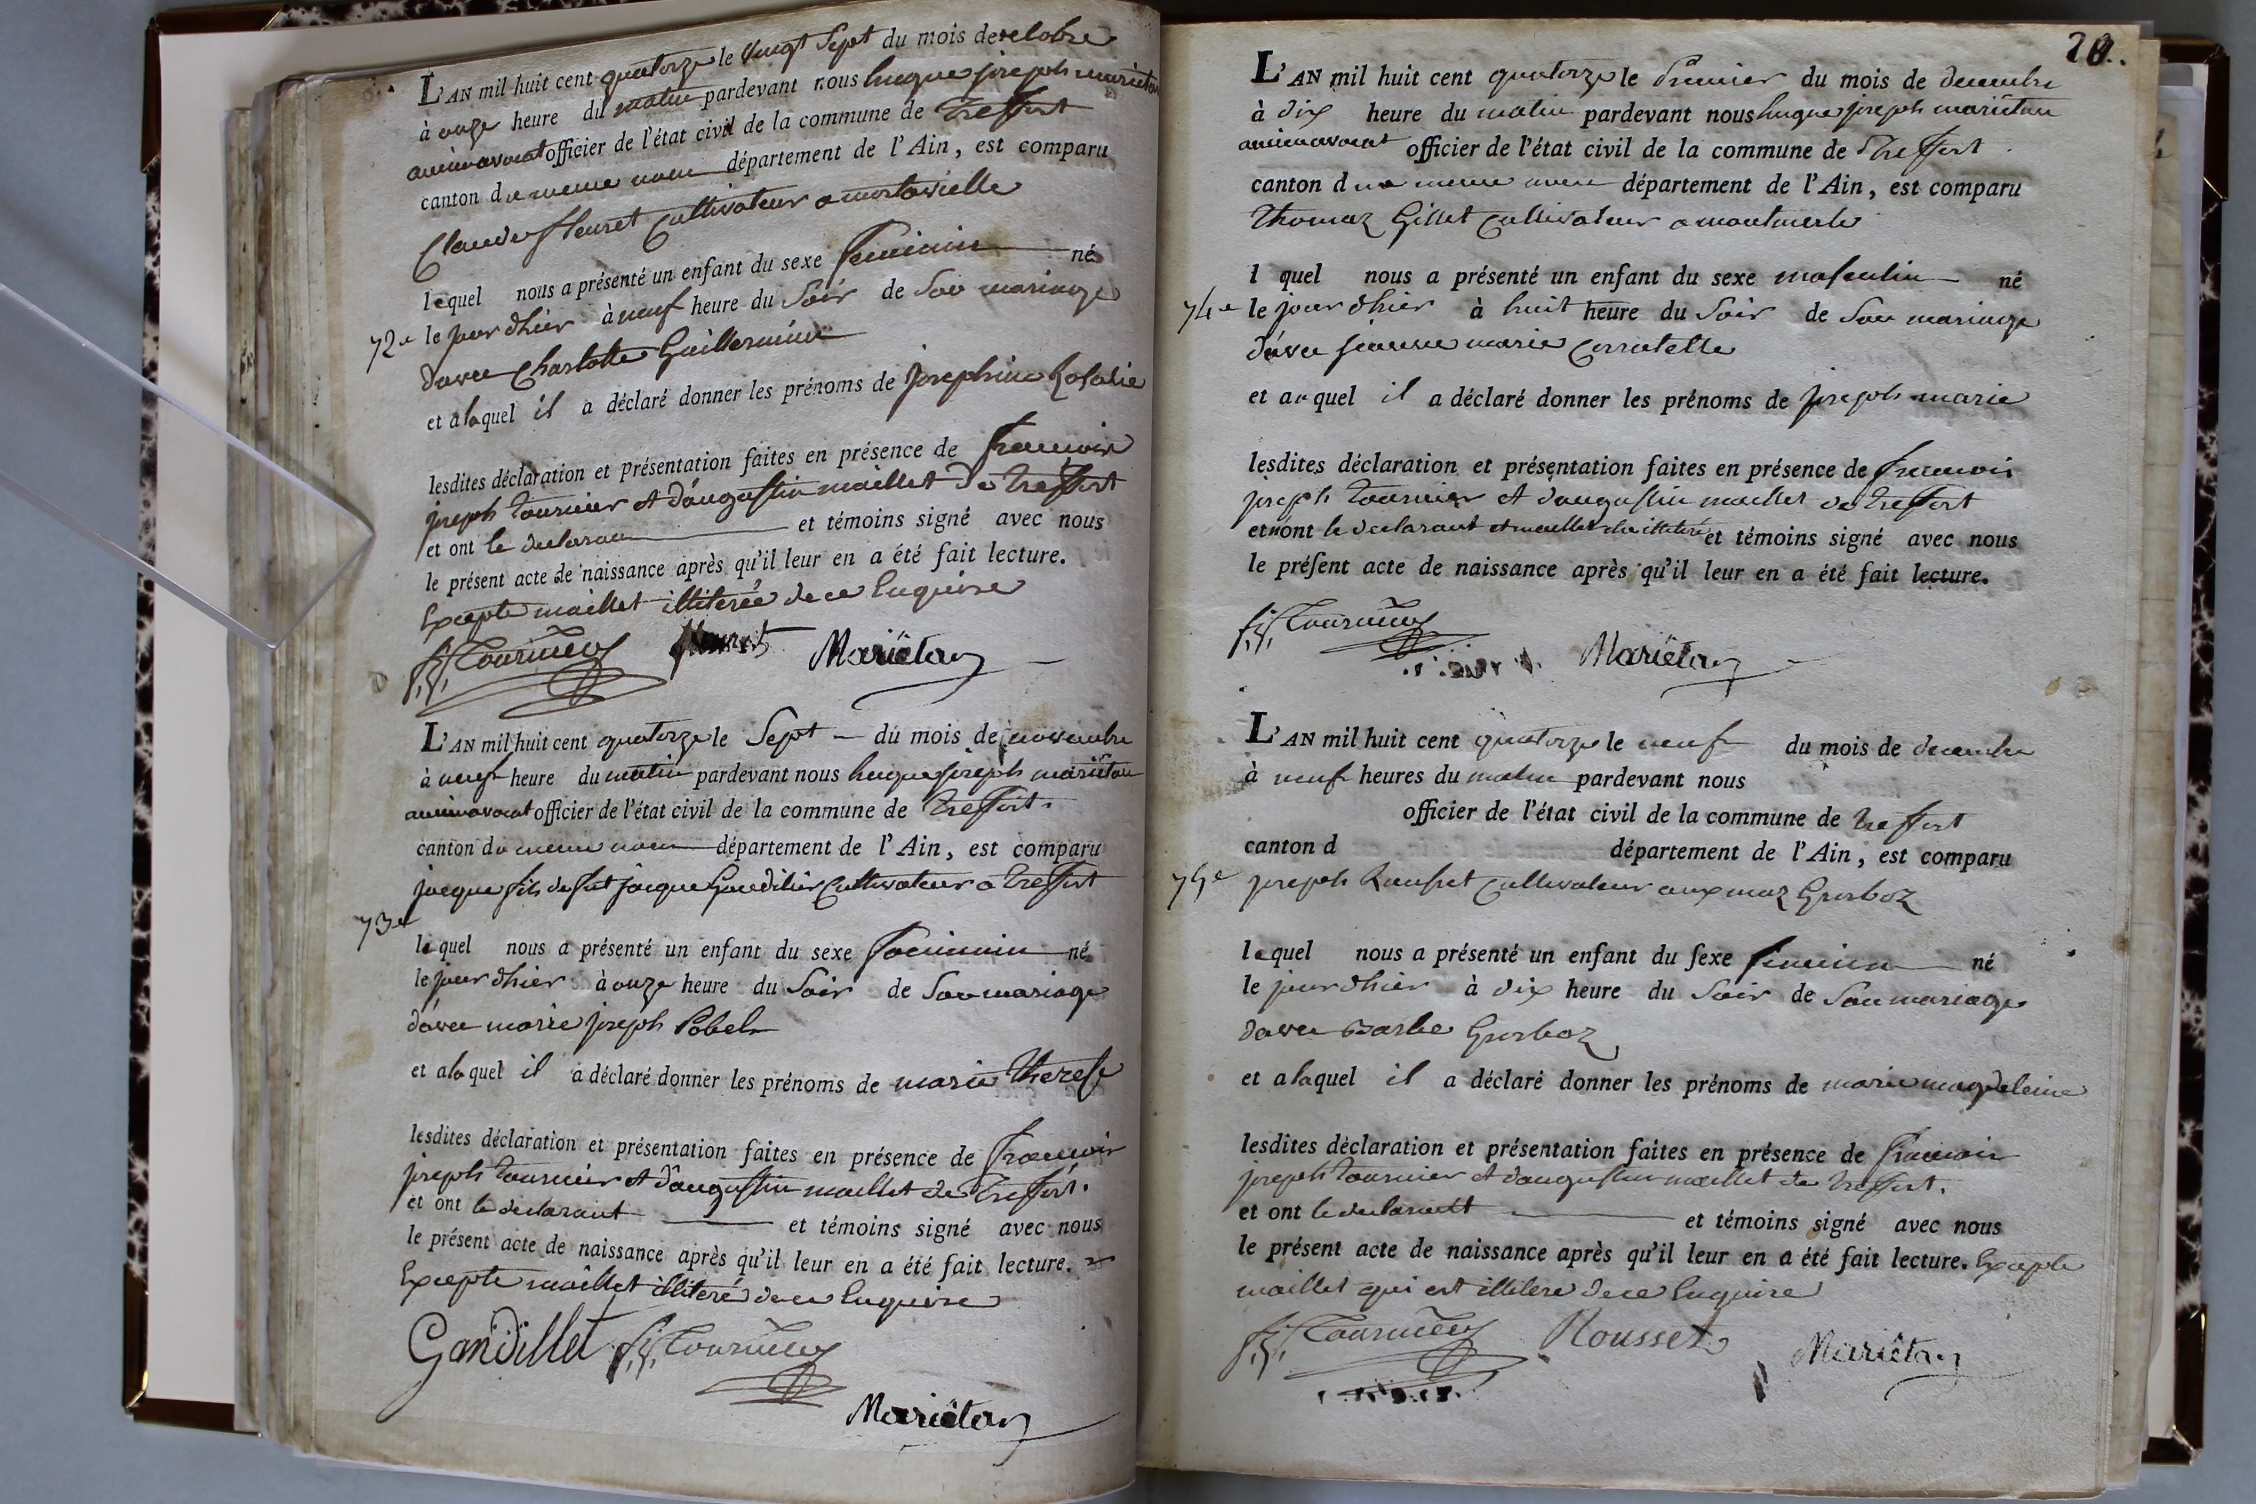 L'AN mil huit cent quatorze le vingt Sept du mois de octobre
à onze heure du matin pardevant nous hugue joseph mariétan
ancien avocat officier de l'état civil de la commune de treffort
canton du meme nom département de l'Ain, est comparu
Claude fleuret Cultivateur a montavielle
lequel nous a présenté un enfant du sexe feminin né
72e le jour d'hier à neuf heure du Soir de Son mariage
d'avec Charlotte Guillermin
et a laquel il a déclaré donner les prénoms de josephine Rosalie
lesdites déclaration et présentation faites en présence de francois
joseph tournier et d'augustin maillet de treffort
et ont le declarant et témoins signé avec nous
le présent acte de naissance après qu'il leur en a été fait lecture.
Excepte maillet illiteré de ce Enquire
f.j. Tournier fleuret Mariëtan
L'AN mil huit cent quatorze le Sept du mois de novembre
à neuf heure du matin pardevant nous hugue joseph mariétan
ancien avocat officier de l'état civil de la commune de treffort.
canton du meme nom département de l'Ain, est comparu
jacque fils de fut jacque Gandilier Cultivateur a treffort
73e
lequel nous a présenté un enfant du sexe foeminin né
le jour d'hier à onze heure du Soir de Son mariage
d'avec marie joseph Pobel
et a laquel il a déclaré donner les prénoms de marie therese
lesdites déclaration et présentation faites en présence de francois
joseph tournier et d'augustin maillet de treffort.
et ont le declarant et témoins signé avec nous
le présent acte de naissance après qu'il leur en a été fait lecture.
Excepte maillet illiteré de ce Enquire
Gandillet f.j. Tournier
Mariëtan
L'AN mil huit cent quatorze le Premier du mois de decembre
à dix heure du matin pardevant nous hugue joseph mariétan
ancien avocat officier de l'état civil de la commune de treffort
canton du meme nom département de l'Ain, est comparu
thomaz Gillet Cultivateur a montmerle
l quel nous a présenté un enfant du sexe masculin né
74e le jour d'hier à huit heure du Soir de Son mariage
d'avec jeanne marie Corratelle
et au quel il a déclaré donner les prénoms de joseph marie
lesdites déclaration et présentation faites en présence de francois
joseph tournier et d'augustin maillet de treffort
et n'ont le declarant et maillet illiteré et témoins signé avec nous
le présent acte de naissance après qu'il leur en a été fait lecture.
f.j. Tournier Mariëtan
L'AN mil huit cent quatorze le neuf du mois de decembre
à neuf heures du matin pardevant nous
officier de l'état civil de la commune de treffort
canton d département de l'Ain, est comparu
75e joseph Rousset Cultivateur aux maz Grosboz
lequel nous a présenté un enfant du sexe feminin né
le jour d'hier à dix heure du Soir de Son mariage
d'avec Barbe Grosboz
et a laquel il a déclaré donner les prénoms de marie magdeleine
lesdites déclaration et présentation faites en présence de francois
joseph tournier et d'augustin maillet de treffort.
et ont le declarant et témoins signé avec nous
le présent acte de naissance après qu'il leur en a été fait lecture. Excepte
maillet qui est illitere de ce Enquire
f.j. Tournier Rousset Mariëtan